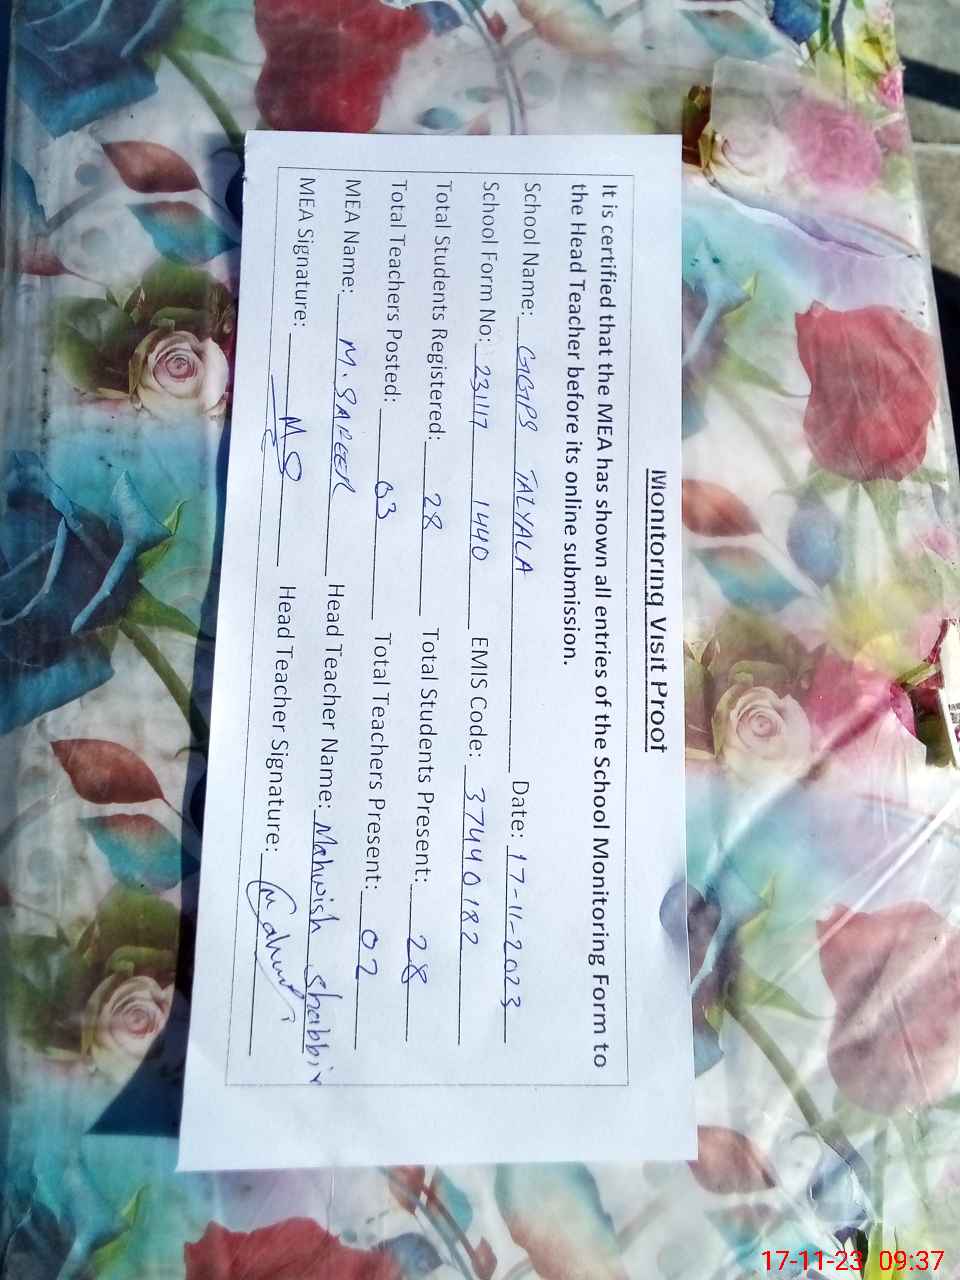 Monitoring Visit Proof
It is certified that the MEA has shown all entries of the School Monitoring Form to
the Head Teacher before its online submission.
School Name: GGPS TALYALA Date: 17-11-2023
School Form No: 23117 1440 EMIS Code: 37440182
Total Students Registered: 28 Total Students Present: 28
Total Teachers Posted: 03 Total Teachers Present: 02
MEA Name: M. SAREER Head Teacher Name: Mahwish Shabbir
MEA Signature: MS Head Teacher Signature:
17-11-23 09:37